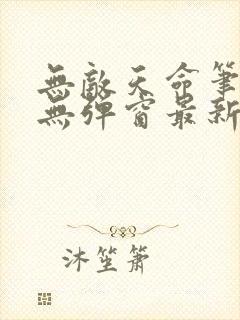 無敵天命筆
無彈窗最新
沐笙簫